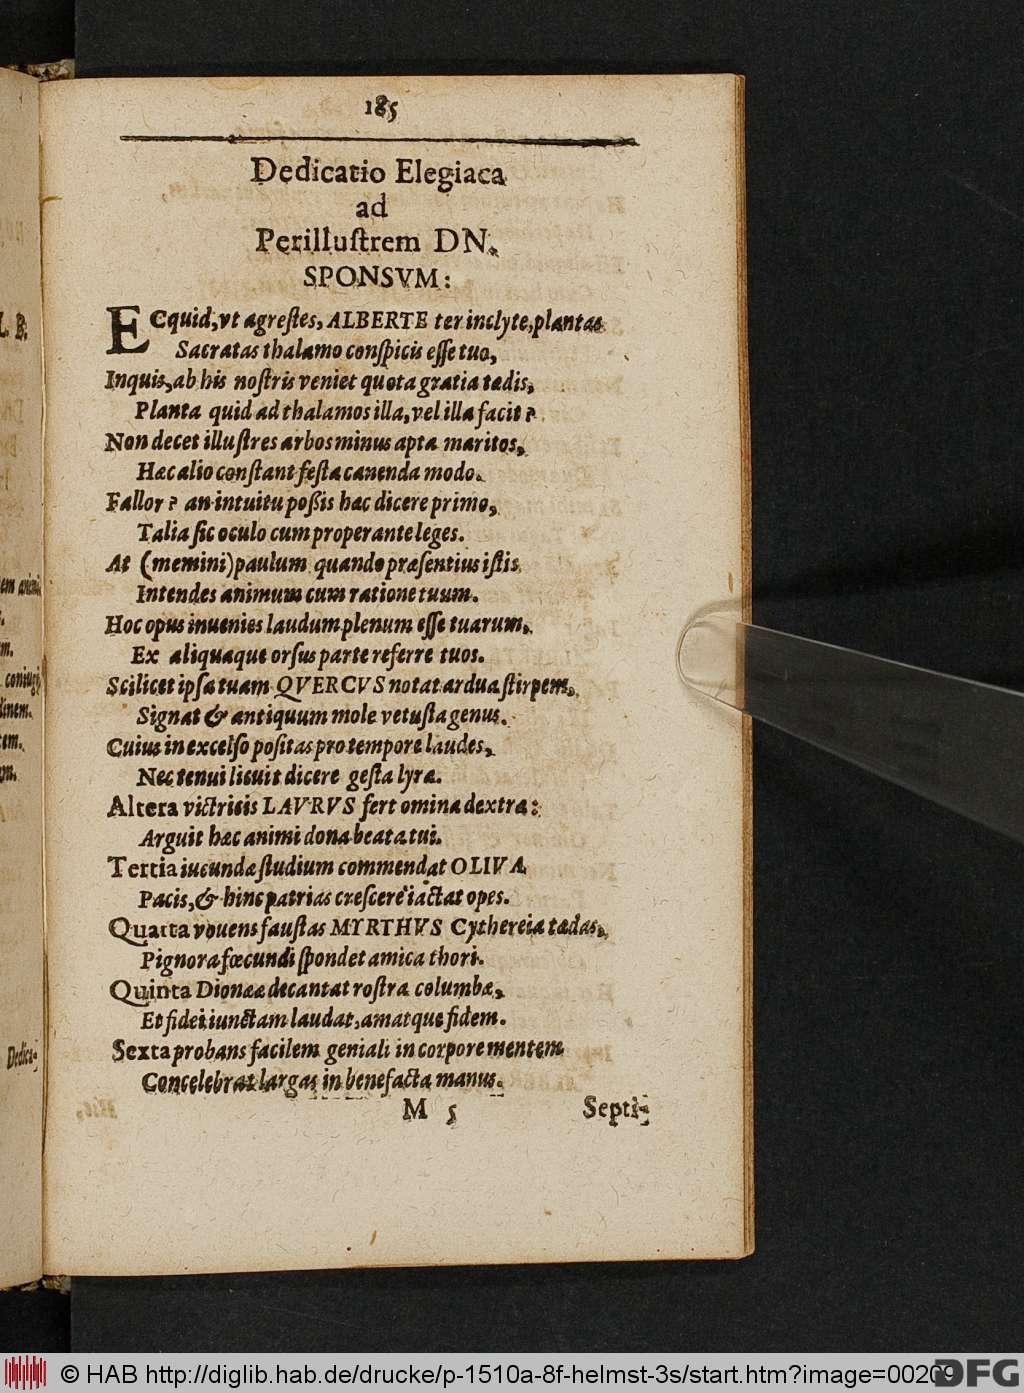 185
Dedicatio Elegiaca
ad
Perillustrem DN.
SPONSVM:
ECquid, vt agrestes, ALBERTE ter inclyte, plantas
Sacratas thalamo conspicis esse tuo,
Inquis, ab his nostris veniet quota gratia tædis,
Planta quid ad thalamos illa, vel illa facit?
Non decet illustres arbos minus apta maritos,
Hæc alio constant festa canenda modo.
Fallor? an intuitu poßis hæc dicere primo,
Talia sic oculo cum properante leges.
At (memini) paulum quando præsentius istis
Intendes animum cum ratione tuum.
Hoc opus inuenies laudum plenum esse tuarum,
Ex aliquaque orsus parte referre tuos.
Scilicet ipsa tuam QVERCVS notat ardua stirpem,
Signat & antiquum mole vetusta genus.
Cuius in excelso positas pro tempore laudes,
Nec tenui licuit dicere gesta lyra.
Altera victricis LAVRVS fert omina dextræ:
Arguit hæc animi dona beata tui.
Tertia iucundæ studium commendat OLIVA
Pacis, & hinc patrias crescere iactat opes.
Quarta vouens faustas MYRTHVS Cythereia tædas,
Pignora fœcundi spondet amica thori.
Quinta Dionææ decantat rostra columbæ,
Et fidei iunctam laudat, amatque fidem.
Sexta probans facilem geniali in corpore mentem
Concelebrat largas in benefacta manus.
M 5 Septi-
L. B.
em animi
m.
coniugij
dinem.
tem.
Dedica-
© HAB http://diglib.hab.de/drucke/p-1510a-8f-helmst-3s/start.htm?image=00209
DFG